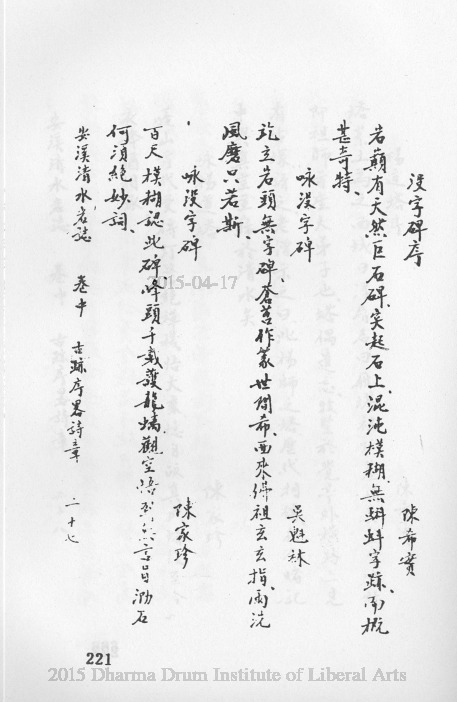 沒字碑序
陳希實
岩巔有天然巨石碑、突起石上、混沌模糊、無蝌蚪字跡、而概
甚奇特、
咏沒字碑
吳魁
訖立岩頭無字碑、蒼苔作篆世間希、西來佛祖玄玄指、雨洗
風磨只若斯、
咏沒字碑
陳家珍
百尺模糊認此碑峰頭千載護龍螭觀空悟 無言 泐石
何須絕妙詞、
安溪清水岩誌 卷中 古跡序畧詩章 二十七
2015-04-17
221
2015 Dharma Drum Institute of Liberal Arts